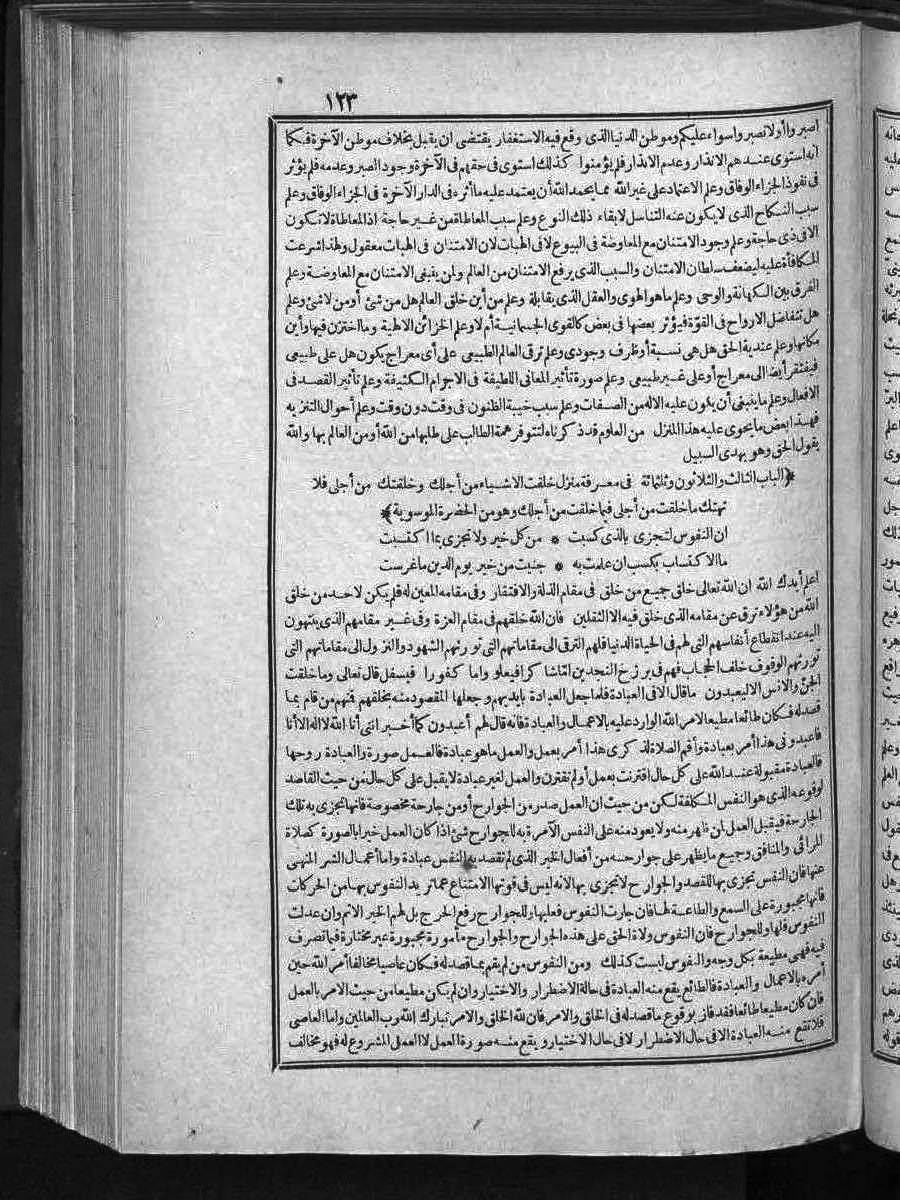 ١٢٣
اصبروا أولا تصبروا سواء عليكم وموطن الدنيا الذى وقع فيه الاستغفار يقتضى ان يقبل بخلاف موطن الآخرة فكما
انه استوى عندهم الانذار وعدم الانذار فلم يؤمنوا كذلك استوى فى حقهم فى الآخرة وجود الصبر وعدمه فلم يؤثر
فى نفوذ الجزاء الوفاق وعلم الاعتماد على غير الله مما يحمد الله أن يعتمد عليه ما أثره فى الدار الآخرة فى الجزاء الوفاق وعلم
سبب النكاح الذى لا يكون عنه التناسل لابقاء ذلك النوع وعلم سبب المعاطاة من غير حاجة اذ المعاطاة لا تكون
الا فى ذى حاجة وعلم وجود الامتنان مع المعاوضة فى البيوع لا فى الهبات لان الامتنان فى الهبات معقول ولهذا شرعت
المكافأة عليه ليضعف سلطان الامتنان والسبب الذى يرفع الامتنان من العالم ولمن ينبغى الامتنان مع المعاوضة وعلم
الفرق بين الكهانة والوحى وعلم ما هو الهوى والعقل الذى يقابله وعلم من أين خلق العالم هل من شئ أو من لا شئ وعلم
هل تتفاضل الارواح فى القوة فيؤثر بعضها فى بعض كالقوى الجسمانية أم لا وعلم الخزائن الالهية وما اختزن فيها وأين
مكانها وعلم عندية الحق هل هى نسبة أو ظرف وجودى وعلم ترقى العالم الطبيعى على أى معراج يكون هل على طبيعى
فيفتقر أيضا الى معراج أو على غير طبيعى وعلم صورة تأثير المعانى اللطيفة فى الاجرام الكثيفة وعلم تأثير القصد فى
الافعال وعلم ما ينبغى أن يكون عليه الاله من الصفات وعلم سبب خيبة الظنون فى وقت دون وقت وعلم أحوال التنزيه
فهذا بعض ما يحوى عليه هذا المنزل من العلوم قد ذكرناه لتتوفر همة الطالب على طلبها من الله أو من العالم بها والله
يقول الحق وهو يهدى السبيل
﴿الباب الثالث والثلاثون وثلثمائة فى معرفة منزل خلقت الاشياء من أجلك وخلقتك من أجلى فلا
تهتك ما خلقت من أجلى فيما خلقت من أجلك وهو من الحضرة الموسوية﴾
ان النفوس لتجزى بالذى كسبت * من كل خير ولا تجزى بما اكتسبت
ما الاكتساب بكسب ان علمت به * جنيت من خير يوم الدين ما غرست
اعلم أيدك الله ان الله تعالى خلق جميع من خلق فى مقام الذلة والافتقار وفى مقامه المعين له فلم يكن لاحد من خلق
الله من هؤلاء ترق عن مقامه الذى خلق فيه الا الثقلين فان الله خلقهم فى مقام العزة وفى غير مقامهم الذى ينتهون
اليه عند انقطاع أنفاسهم التى لهم فى الحياة الدنيا فلهم الترقى الى مقاماتهم التى تورثهم الشهود والنزول الى مقاماتهم التى
تورثهم الوقوف خلف الحجاب فهم فى برزخ النجدين اما شاكرا فيعلو واما كفورا فيسفل قال تعالى وما خلقت
الجن والانس الا ليعبدون ما قال الا فى العبادة فلما جعل العبادة بايديهم وجعلها المقصود منه بخلقهم فمنهم من قام بما
قصد له فكان طائعا مطيعا لامر الله الوارد عليه بالاعمال والعبادة فانه قال لهم أعبدون كما أخبر اننى أنا الله لا اله الا أنا
فاعبدونى هذا أمر بعبادة وأقم الصلاة لذكرى هذا أمر بعمل والعمل ما هو عبادة فالعمل صورة والعبادة روحها
فالعبادة مقبولة عند الله على كل حال اقترنت بعمل أو لم تقترن والعمل لغير عبادة لا يقبل على كل حال من حيث القاصد
لوقوعه الذى هو النفس المكلفة لكن من حيث ان العمل صدر من الجوارح أو من جارحة مخصوصة فانها تجزى به تلك
الجارحة فيقبل العمل لمن ظهر منه ولا يعود منه على النفس الآمرة به للجوارح شئ اذا كان العمل خيرا بالصورة كصلاة
المرائى والمنافق وجميع ما يظهر على جوارحه من أفعال الخير الذى لم تقصد به النفس عبادة واما أعمال الشر المنهى
عنها فان النفس تجزى بها للقصد والجوارح لا تجزى بها لانه ليس فى قوتها الامتناع عما تريد النفوس بها من الحركات
فانها مجبورة على السمع والطاعة لها فان جارت النفوس فعليها وللجوارح رفع الحرج بل لهم الخير الاتم وان عدلت
النفوس فلها وللجوارح فان النفوس ولاة الحق على هذه الجوارح والجوارح مأمورة مجبورة غير مختارة فيما تصرف
فيه فهى مطيعة بكل وجه والنفوس ليست كذلك ومن النفوس من لم يقم بما قصد له فكان عاصيا مخالفا أمر الله حين
أمره بالاعمال والعبادة فالطائع يقع منه العبادة فى حالة الاضطرار والاختيار وان لم يكن مطيعا من حيث الامر بالعمل
فان كان مطيعا طائعا فقد فاز بوقوع ما قصد له فى الخلق والامر فان لله الخلق والامر تبارك الله رب العالمين واما العاصى
فلا تقع منه العبادة الا فى حال الاضطرار لا فى حال الاختيار ويقع منه صورة العمل لا العمل المشروع له فهو مخالف